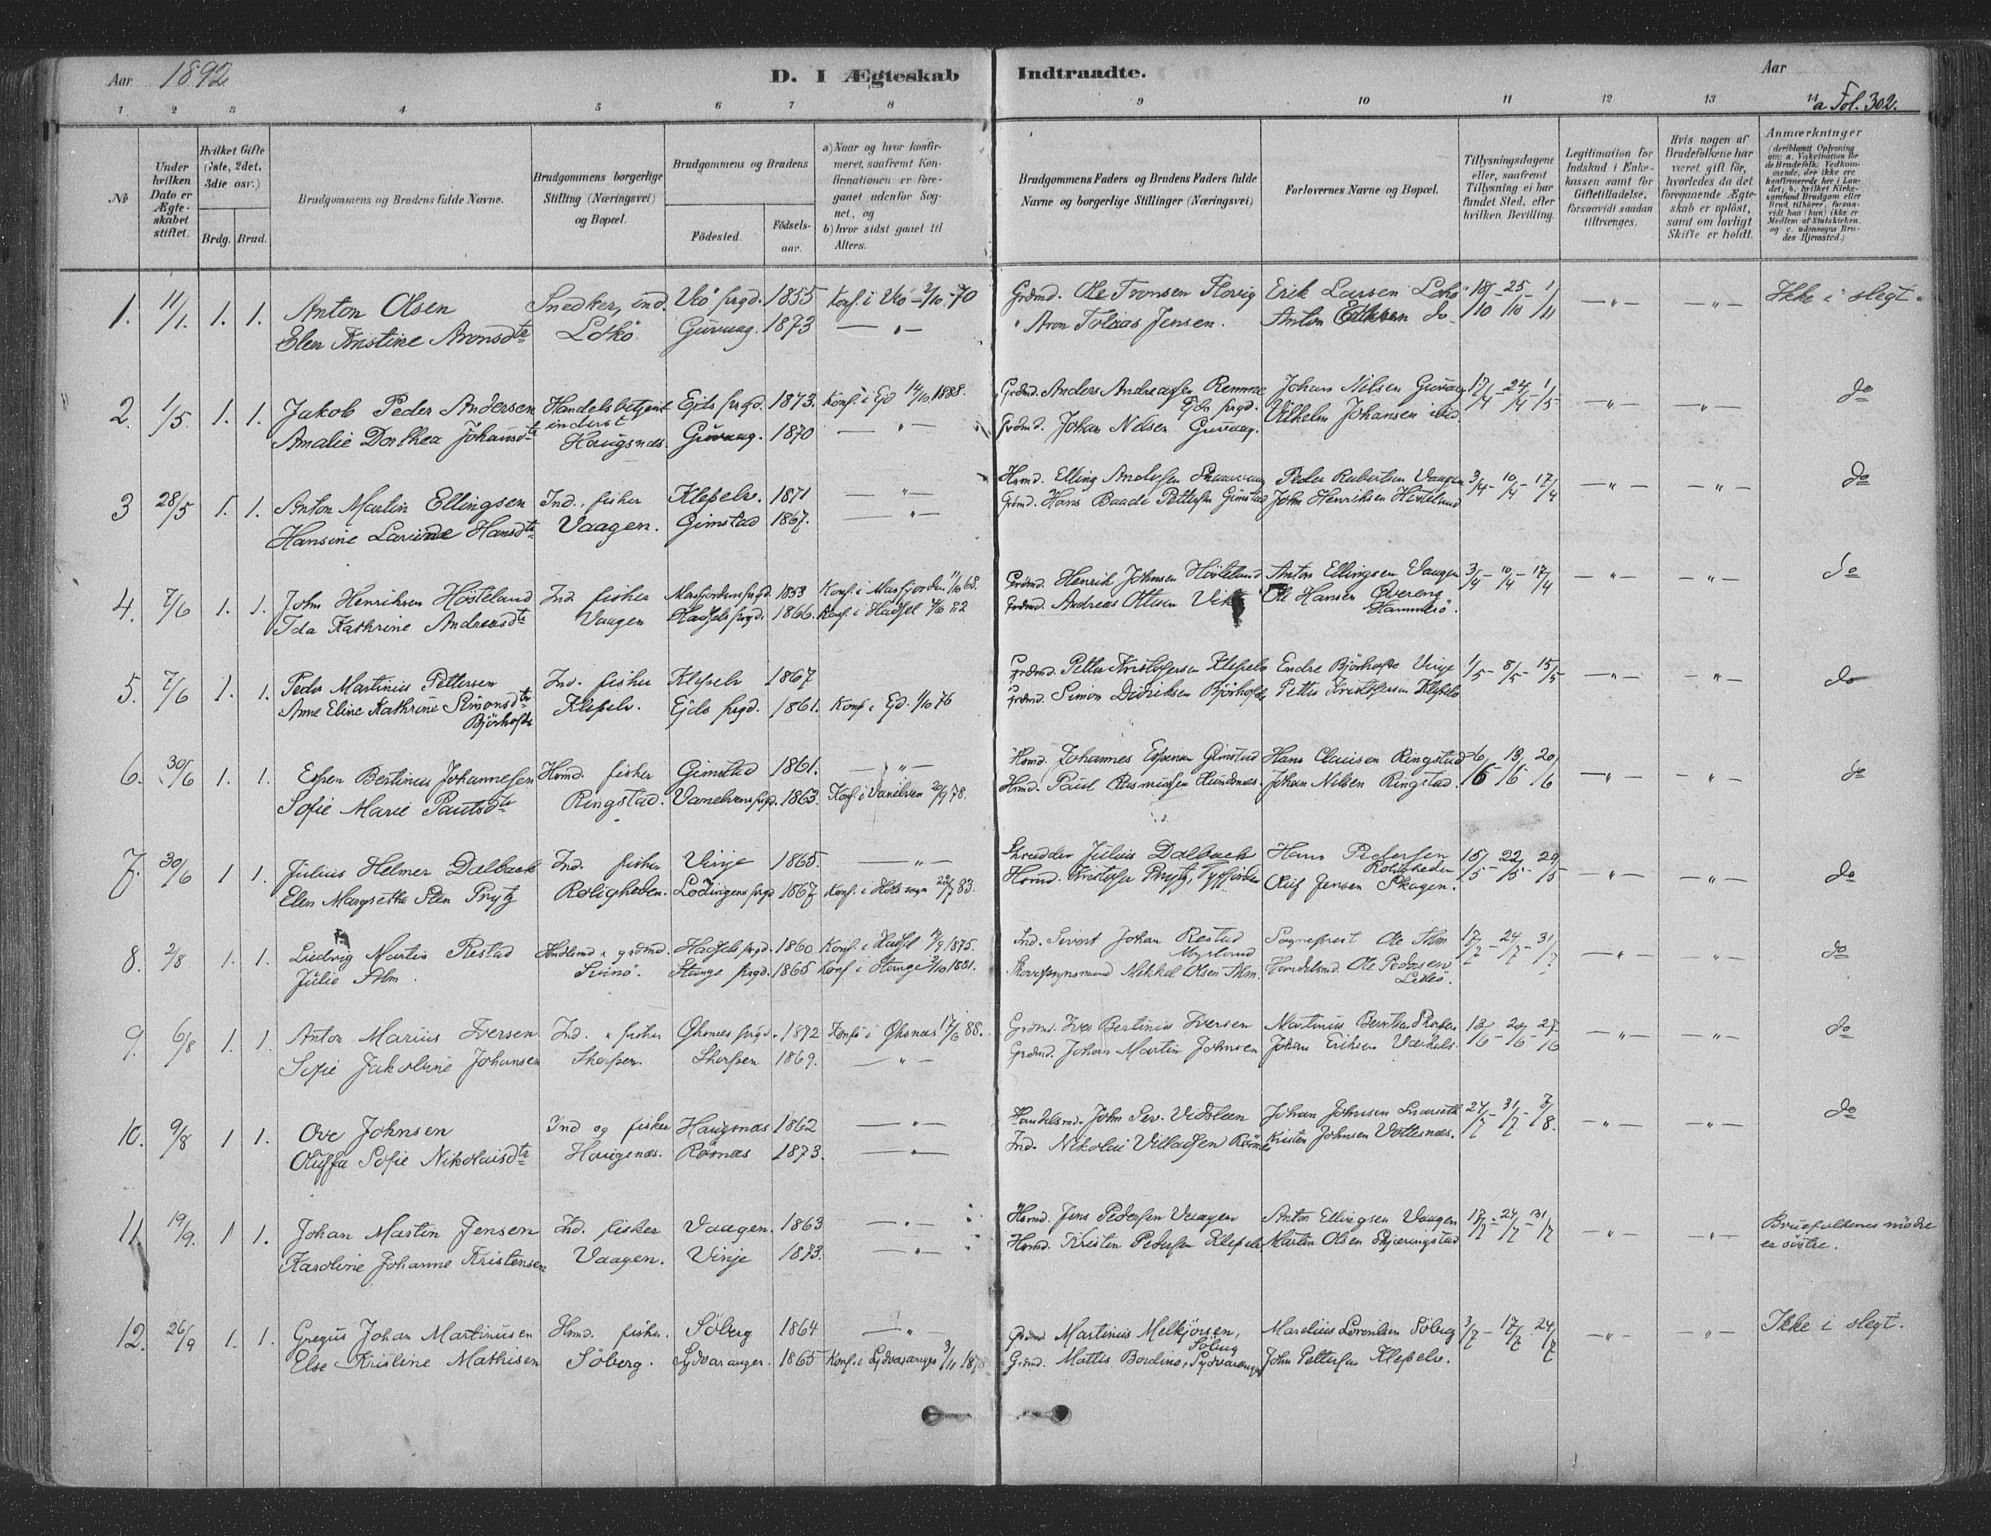 Aar 1892
D. I Ægteskab Indtraadte.
Aar
a Fol. 302.
1 2 3 4 5 6 7 8 9 10 11 12 13 14
№
Under hvilken Dato er Ægteskabet stiftet.
Hvilket Gifte (1ste, 2det, 3die osv.)
Brdg. Brud.
Brudgommens og Brudens fulde Navne.
Brudgommens borgerlige Stilling (Næringsvei) og Bopæl.
Brudgommens og Brudens
Fødested.
Fødselsaar.
a) Naar og hvor konfirmeret, saafremt Konfirmationen er foregaaet udenfor Sognet, og
b) hvor sidst gaaet til Alters.
Brudgommens Faders og Brudens Faders fulde Navne og borgerlige Stillinger (Næringsvei)
Forlovernes Navne og Bopæl.
Tillysningsdagene eller, saafremt Tillysning ei har fundet Sted, efter hvilken Bevilling.
Legitimation for Indskud i Enkekassen samt for Giftetilladelse, forsaavidt saadan tiltrænges.
Hvis nogen af Brudefolkene har været gift før, hvorledes da det foregaaende Ægteskab er opløst, samt om lovligt Skifte er holdt.
Anmærkninger
1. 11/1. 1. 1. Anton Olsen Snedker, ind. Veö prgd. 1855 Konf. i Veö 2/10-70 Grdmd. Ole Tronsen Flovig Erik Larsen Lökö 18/10 - 25/10 - 1/11 —„— Ikke i slegt.
Elen Kristine Aronsdtr Lökö. Guvaag. 1873 —„— „ Aron Tobias Jensen. Anton do
2. 1/5. 1. 1. Jakob Peder Andersen Handelsbetjent Ejds prgd. 1873. Konf. i Ejd 14/10.1888. Grdmd. Anders Andreassen Remme Johan Nilsen Guvaag 17/4 - 24/4 - 1/5 —„— —„— do
inderst Ejds prgd. Vilhelm Johansen ibid
Amalie Dorthea Johansdtr Haugsnæs. Guvaag. 1870 —„— Grdmd. Johan Nilsen Guvaag.
3 28/5 1. 1. Anton Martin Ellingsen Ind., fisker Klepelv. 1871 —„— Hsmd. Elling Andersen Peder Robertsen Vaagen 3/4 - 10/4 - 17/4 —„— —„— do
Hansine Larine Hansdtr Vaagen. Gimstad 1867. —„— Grdmd. Hans Baade Pettersen Gimstad John Henriksen Hösteland
4. 7/6 1. 1. John Henriksen Hösteland Ind. fisker Masfjordens prgd 1853 Konf. i Masfjorden 11/10 68. Grdmd. Henrik Johnsen Hösteland Anton Ellingsen Vaagen 3/4 - 10/4 - 17/4 —„— —„— do
Ida Kathrine Andreasdtr Vaagen Hadsels prgd. 1866. Konf. i Hadsel 82 Grdmd. Andreas Ottesen Vik Ole Hansen
Hammerö.
5. 7/6 1. 1. Peder Martinius Pettersen Ind. fisker Klepelv 1867 Grdmd. Petter Kristofersen Klepelv Endre Björhofde Virije 1/5 - 8/5 - 15/5 —„— —„— do
Anne Eline Kathrine Simonsdtr Klepelv. Ejds prgd. 1861. Konf. i Ejd. 1/10 76 Grdmd. Simon Didriksen Björhofde Petter Kristofersen Klepelv
Björhofde
6. 30/6 1. 1. Espen Bertinius Johannesen Hsmd. fisker Gimstad 1861. —„— Hsmd. Johannes Espensen Gimstad Hans Clausen Ringstad 6/6 - 13/6 - 20/6 —„— —„— do
Sofie Marie Paulsdtr Ringstad. Vanelvens prgd. 1863. Konf. i Vanelven 20/9 78. Hsmd. Paul Rasmussen Johan Nilsen Ringstad.
7. 30/6 1 1. Julius Helmer Dalback Ind. fisker Virije 1865. —„— Skrædder Julius Dalback Hans Pedersen 15/5 - 22/5 - 29/5 —„— —„— do
Roligheden
Elen Margrethe Sten Prytz Roligheden. Lödingens prgd 1867 Konf. i Hols sogn 83. Hsmd. Kristofer Prytz, Tysfjorden Oluf Jensen Skagen.
8. 2/8 1. 1. Ludvig Martin Restad Handlsmd. & grdmd. Hadsels prgd. 1860 Konf. i Hadsel 1875. Ind. Sivert Johan Restad Sogneprest Ole Alm 17/7 - 24/7 - 31/7 —„— —„— do
Myrland
Julie Alm. Stange prgd. 1865 Konf. i Stange 2/10 1881. Skovopsynsmand Mikkel Olsen Alm. Handelsmd. Ole Pedersen
9. 6/8 1. 1. Anton Marius Iversen Ind. & fisker Öksnes prgd. 1872 Konf. i Öksnæs 17/6 88. Grdmd. Iver Bertinius Iversen Martinius Bernthsen 13/6 - 20/6 - 27/6 —„— —„— do
Sofie Jakobine Johansen Skorpen. Skorpen 1869. —„— Grdmd. Johan Martin Johnsen Johan Eriksen
10. 9/8 1 1. Ove Johnsen Ind og fisker Haugsnæs 1862 —„— Handelsmd. John Sev. Johan Johnsen 24/7 - 31/7 - 7/8. —„— —„— do
Oluffa Sofie Nikolaisdtr Haugsnæs. Rösnæs 1873. —„— Ind. Nikolai Villadsen Rösnæs Kristen Johnsen Vottesnæs.
11. 19/9. 1 1. Johan Martin Jensen Ind. fisker Vaagen. 1863 —„— Hsmd. Jens Pedersen Vaagen Anton Ellingsen Vaagen 17/7 - 24/7 - 31/7 —„— —„— Brudefolkenes mödre
er söstre.
Karoline Johanne Kristensen Vaagen. Virije 1873. —„— Hsmd. Kristen Pedersen Klepelv Martin Olsen Skjæringstad
12. 26/9 1. 1. Gregus Johan Martinusen Hsmd. fisker. Söberg 1864 —„— Grdmd Martinius Melkjorsen, Marelius Lorentsen Söberg 3/7 - 17/7 - 24/7 —„— —„— Ikke i slegt.
Söberg
Else Kristine Mathisen Söberg. Sydvaranger. 1865 Konf. i Sydvaranger Grdmd. Mattis Bordino, Sydvaranger John Pettersen Klepelv.